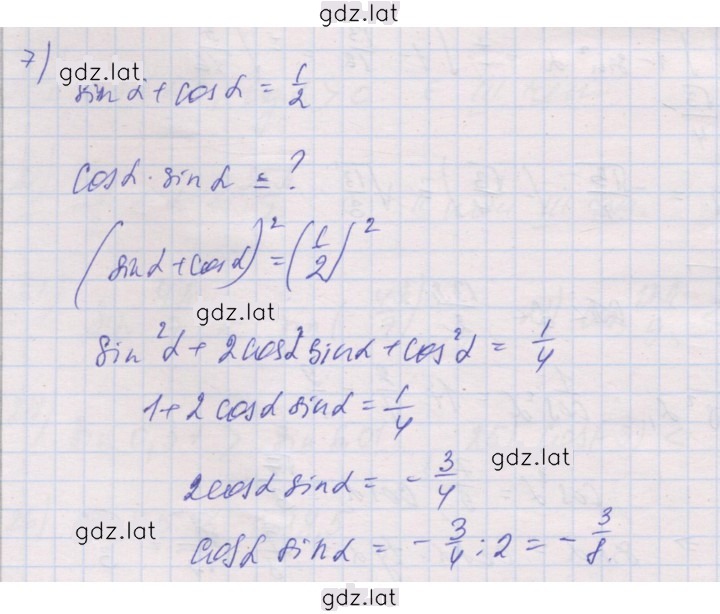 gdz.lat
7)
gdz.lat
sin α + cos α = 1/2
cos α · sin α = ?
(sin α + cos α)² = (1/2)²
gdz.lat
sin²α + 2cos α² sin α + cos²α = 1/4
1 + 2 cos α sin α = 1/4
gdz.lat
2 cos α sin α = - 3/4
gdz.lat
cos α sin α = - 3/4 : 2 = - 3/8.
gdz.lat